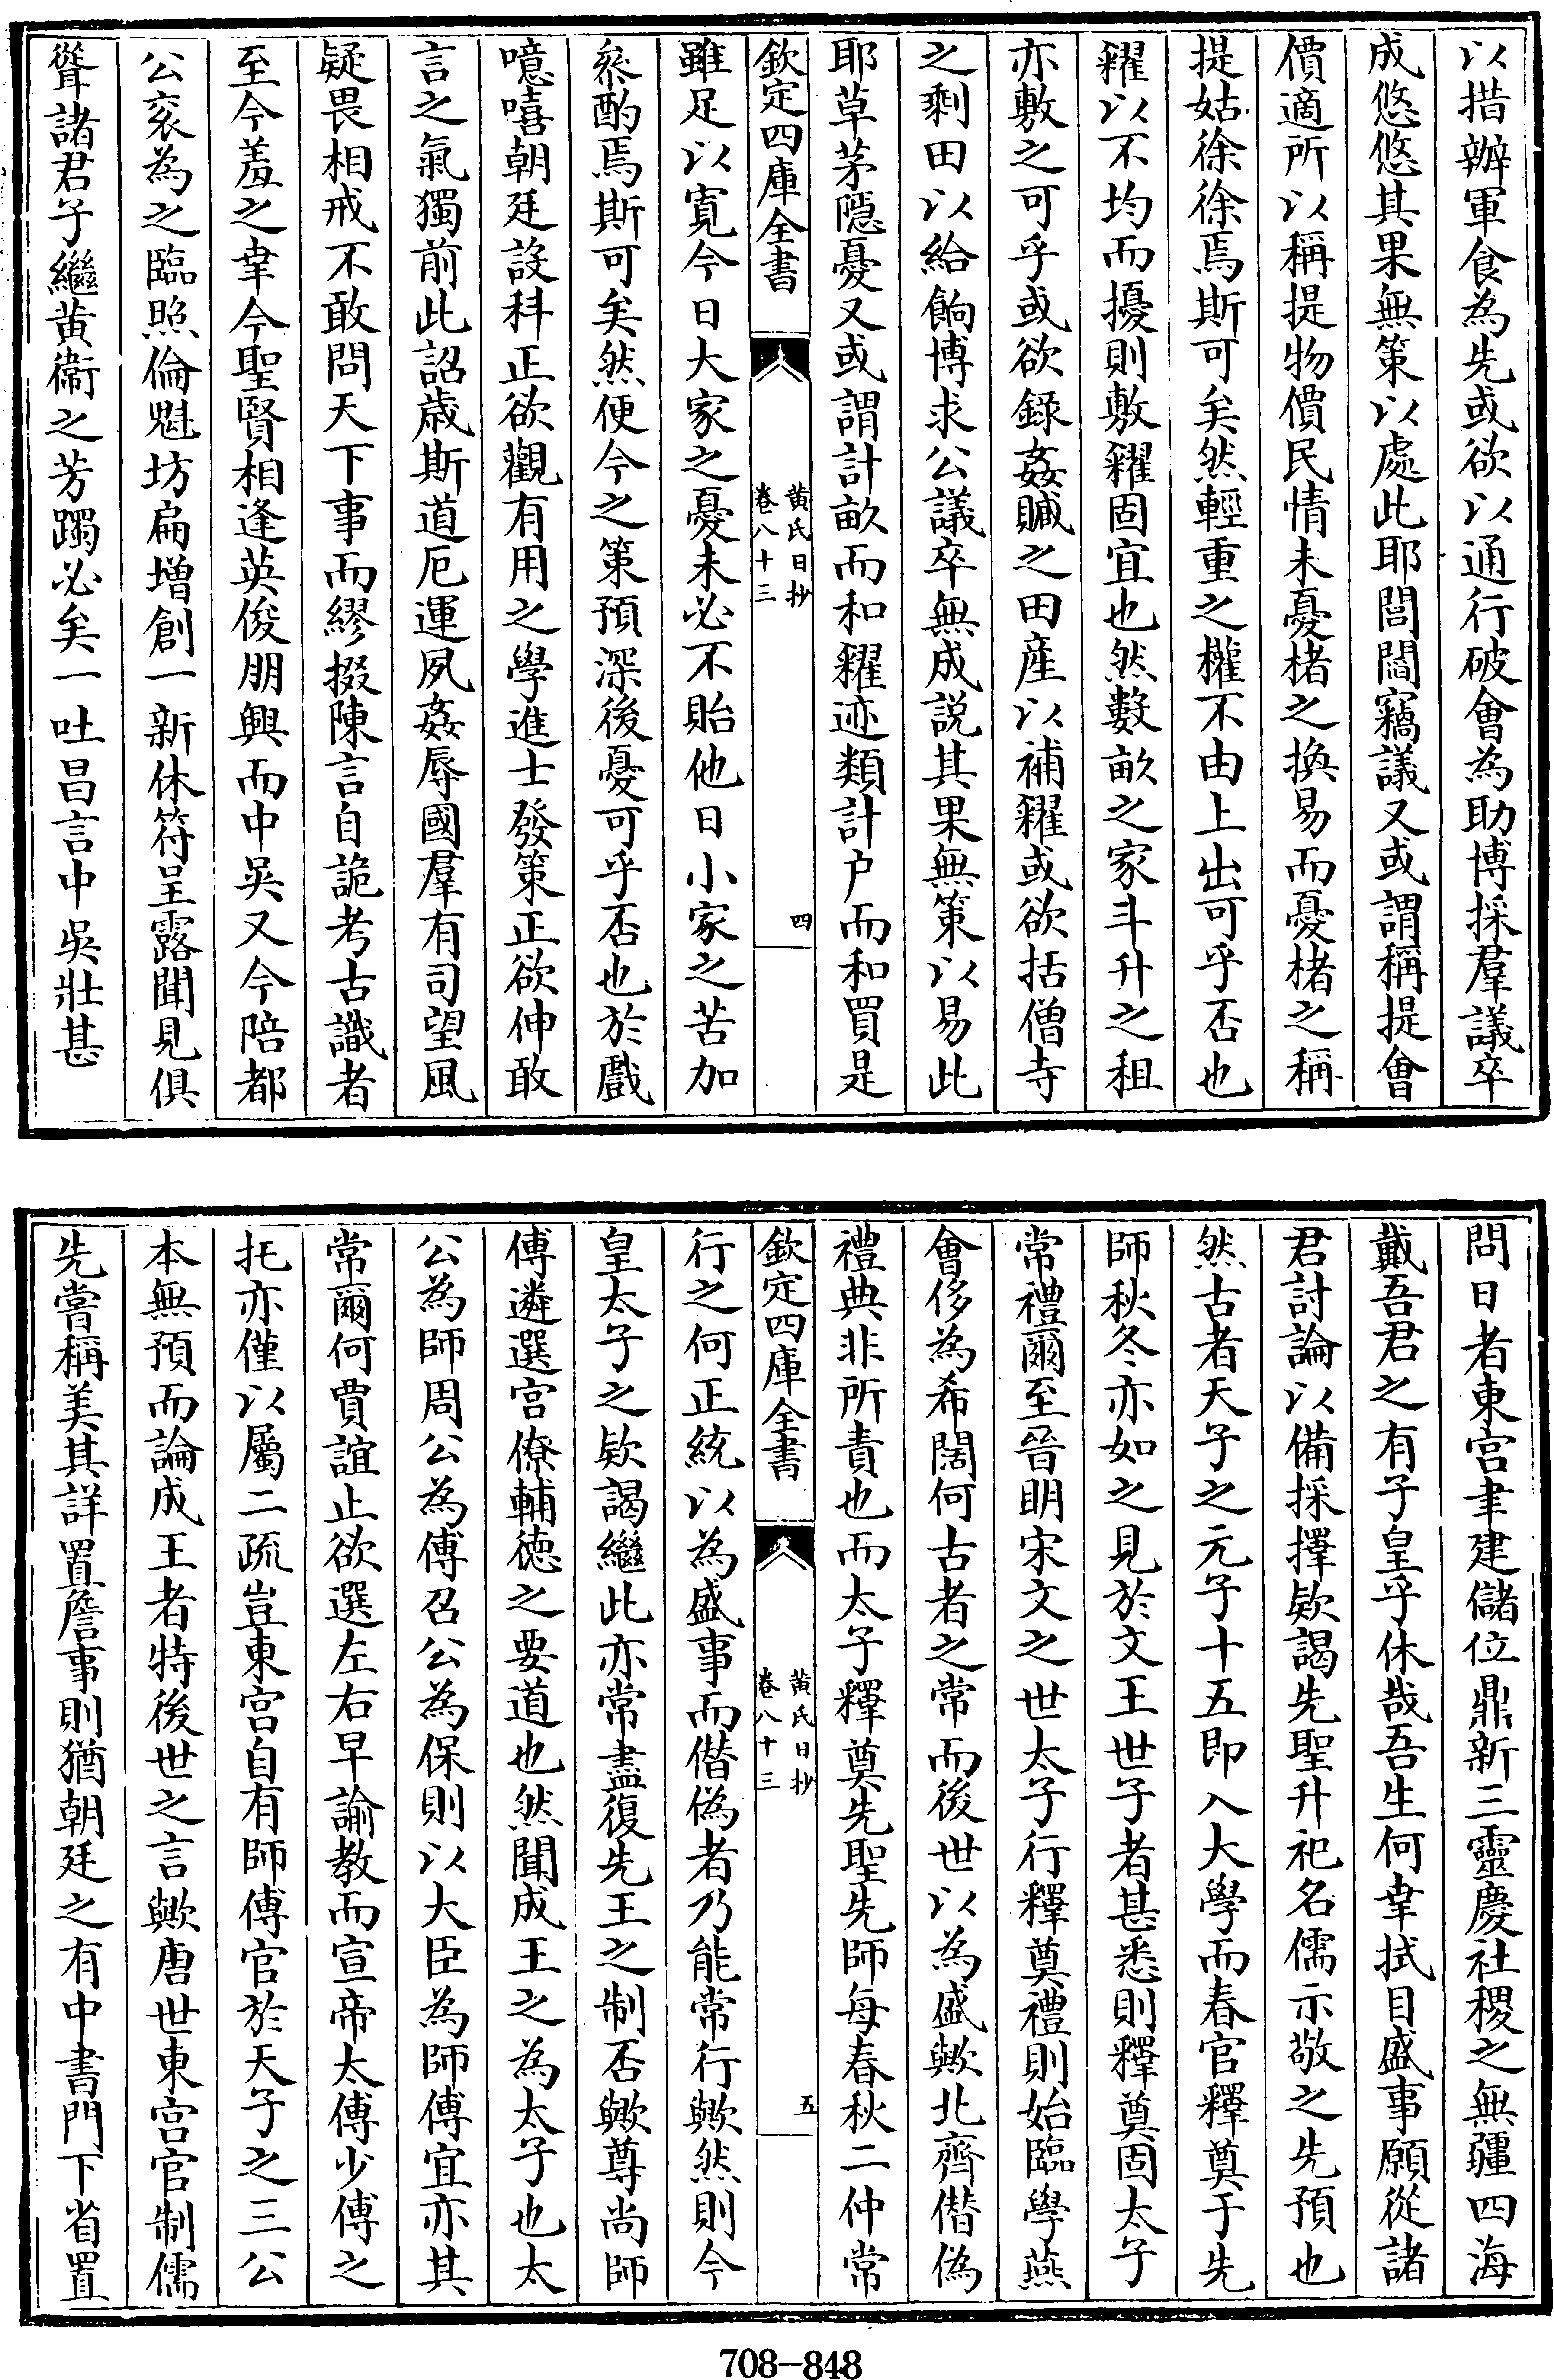 以措辦軍食為先或欲以通行破㑹為助博採羣議卒
成悠悠其果無策以處此耶閭閻竊議又或謂稱提㑹
價適所以稱提物價民情未憂楮之換易而憂楮之稱
提姑徐徐焉斯可矣然輕重之權不由上出可乎否也
糴以不均而擾則敷糴固宜也然數畝之家斗升之租
亦敷之可乎或欲録姦贓之田産以補糴或欲括僧寺
之剩田以給餉博求公議卒無成説其果無策以易此
耶草茅隠憂又或謂計畝而和糴迹類計户而和買是
欽定四庫全書
黄氏日抄
卷八十三
四
雖足以寛今日大家之憂未必不貽他日小家之苦加
叅酌焉斯可矣然便今之策預深後憂可乎否也於戲
噫嘻朝廷設科正欲觀有用之學進士發策正欲伸敢
言之氣獨前此詔歳斯道厄運夙姦辱國羣有司望風
疑畏相戒不敢問天下事而繆掇陳言自詭考古識者
至今羞之幸今聖賢相逢英俊朋興而中吳又今陪都
公衮為之臨照倫魁坊扁増創一新休符呈露聞見俱
聳諸君子繼黄衞之芳躅必矣一吐昌言中吳壯甚
問日者東宫聿建儲位鼎新三靈慶社稷之無疆四海
戴吾君之有子皇乎休哉吾生何幸拭目盛事願從諸
君討論以備採擇欵謁先聖升祀名儒示敬之先預也
然古者天子之元子十五即入大學而春官釋奠于先
師秋冬亦如之見於文王世子者甚悉則釋奠固太子
常禮爾至晉明宋文之世太子行釋奠禮則始臨學燕
㑹侈為希闊何古者之常而後世以為盛歟北齊僭偽
禮典非所責也而太子釋奠先聖先師每春秋二仲常
欽定四庫全書
黄氏日抄
卷八十三
五
行之何正統以為盛事而僭偽者乃能常行歟然則今
皇太子之欵謁繼此亦常盡復先王之制否歟尊尚師
傅遴選宫僚輔徳之要道也然聞成王之為太子也太
公為師周公為傅召公為保則以大臣為師傅宜亦其
常爾何賈誼止欲選左右早諭教而宣帝太傅少傅之
托亦僅以屬二疏豈東宫自有師傅官於天子之三公
本無預而論成王者特後世之言歟唐世東宫官制儒
先嘗稱美其詳置詹事則猶朝廷之有中書門下省置
708-848